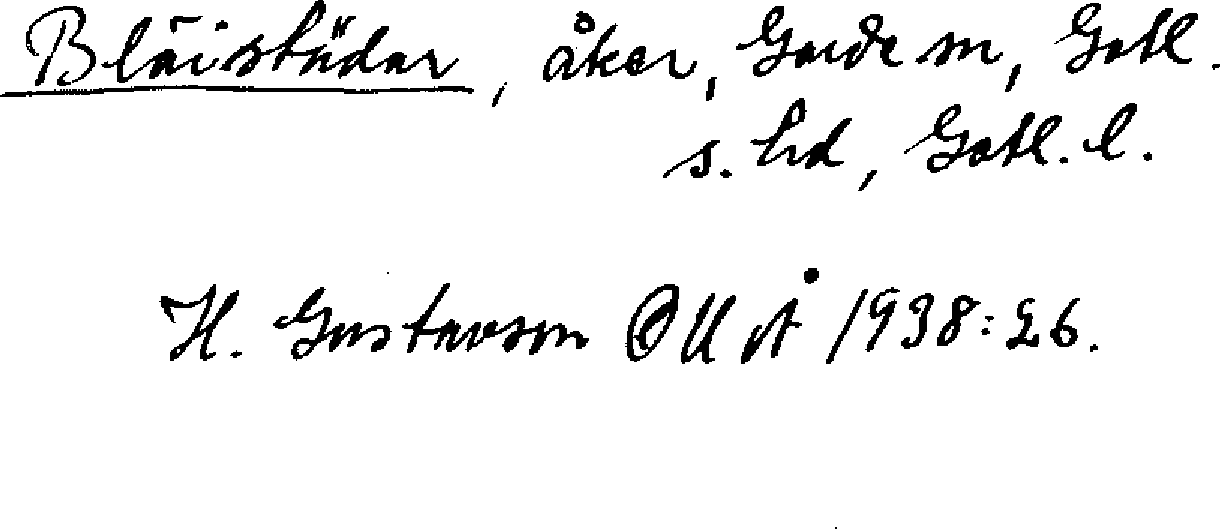 Bläistädar, åker, Garde sn, Gotl.
s. hd, Gotl. l.
H. Gustavson OUÅ 1938:26.